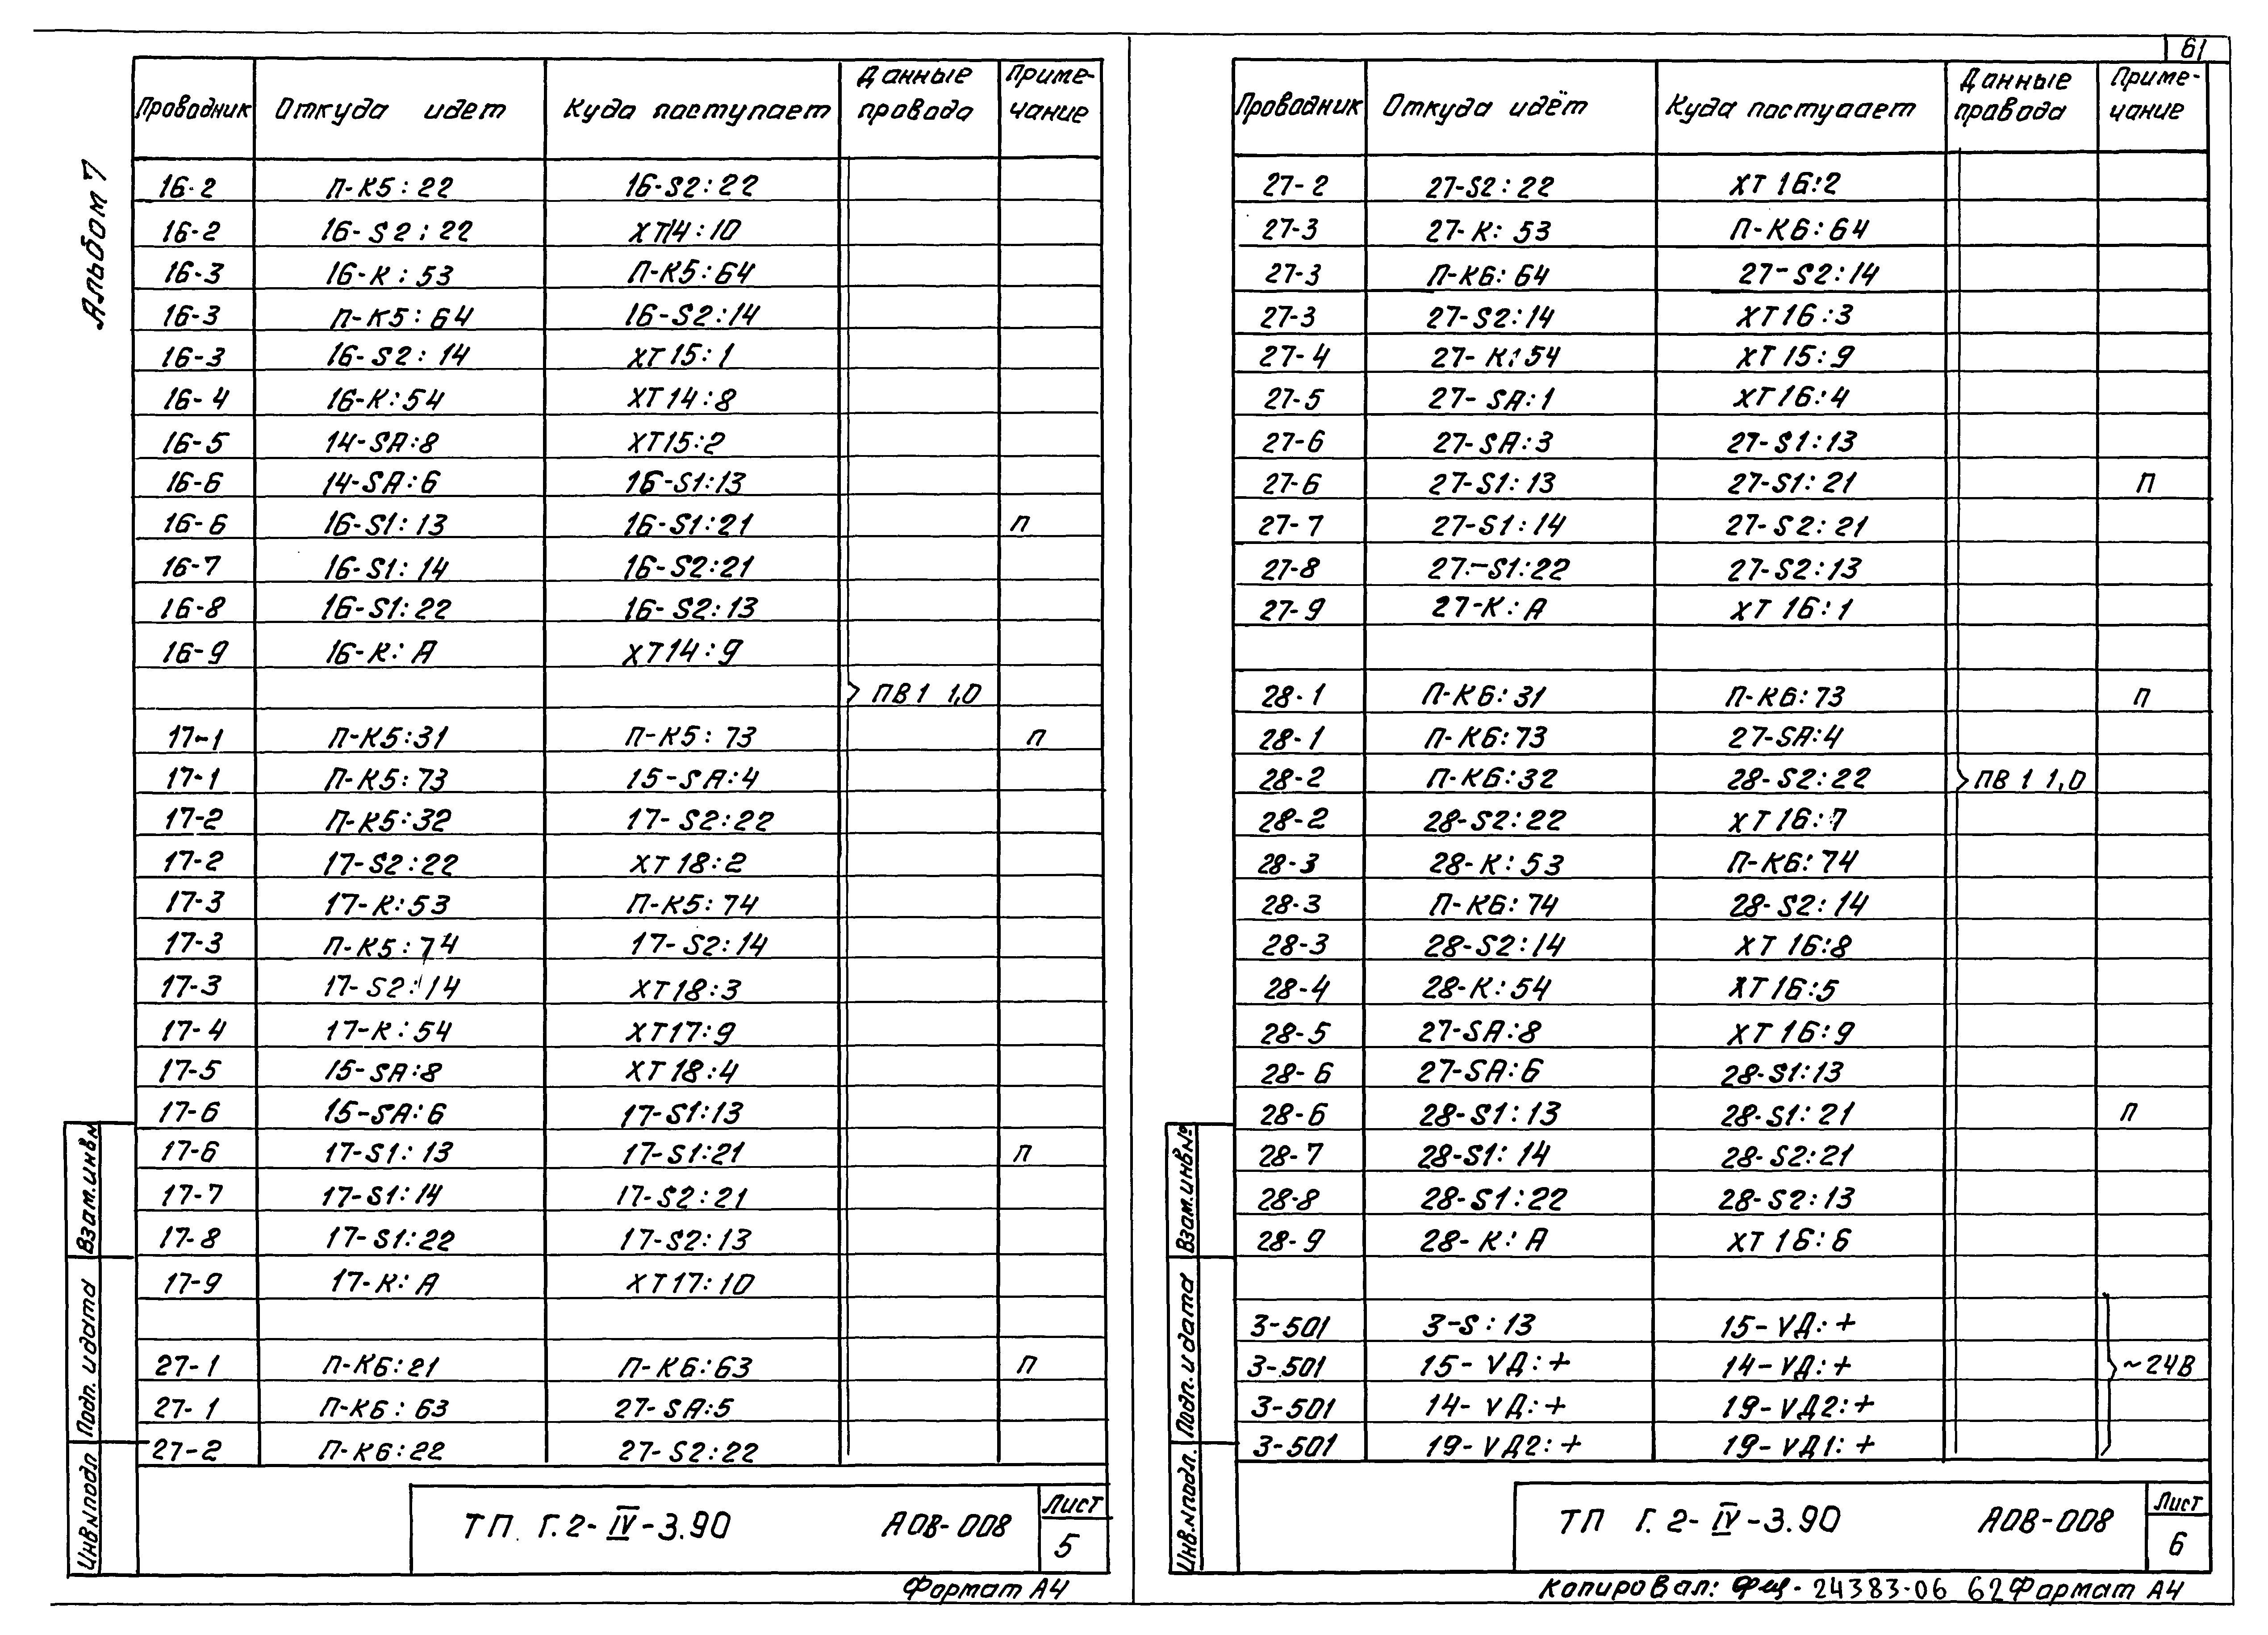 61
Альбом 7
Проводник Откуда идет Куда поступает Данные провода Приме-чание
16-2 П-К5:22 16-S2:22
16-2 16-S2:22 ХТ14:10
16-3 16-К:53 П-К5:64
16-3 П-К5:64 16-S2:14
16-3 16-S2:14 ХТ15:1
16-4 16-К:54 ХТ14:8
16-5 14-SA:8 ХТ15:2
16-6 14-SA:6 16-S1:13
16-6 16-S1:13 16-S1:21 п
16-7 16-S1:14 16-S2:21
16-8 16-S1:22 16-S2:13
16-9 16-К:А ХТ14:9
ПВ1 1,0
17-1 П-К5:31 П-К5:73 п
17-1 П-К5:73 15-SA:4
17-2 П-К5:32 17-S2:22
17-2 17-S2:22 ХТ18:2
17-3 17-К:53 П-К5:74
17-3 П-К5:74 17-S2:14
17-3 17-S2:14 ХТ18:3
17-4 17-К:54 ХТ17:9
17-5 15-SA:8 ХТ18:4
17-6 15-SA:6 17-S1:13
17-6 17-S1:13 17-S1:21 п
17-7 17-S1:14 17-S2:21
17-8 17-S1:22 17-S2:13
17-9 17-К:А ХТ17:10
27-1 П-К6:21 П-К6:63 п
27-1 П-К6:63 27-SA:5
27-2 П-К6:22 27-S2:22
Взам.инв№
Подп. и дата
Инв.№подл
ТП Г.2-IV-3.90 АОВ-008 Лист
5
Формат А4
Проводник Откуда идёт Куда поступает Данные провода Приме-чание
27-2 27-S2:22 ХТ16:2
27-3 27-К:53 П-К6:64
27-3 П-К6:64 27-S2:14
27-3 27-S2:14 ХТ16:3
27-4 27-К:54 ХТ15:9
27-5 27-SA:1 ХТ16:4
27-6 27-SA:3 27-S1:13
27-6 27-S1:13 27-S1:21 П
27-7 27-S1:14 27-S2:21
27-8 27-S1:22 27-S2:13
27-9 27-К:А ХТ16:1
28-1 П-К6:31 П-К6:73 п
28-1 П-К6:73 27-SA:4
28-2 П-К6:32 28-S2:22 ПВ1 1,0
28-2 28-S2:22 ХТ16:7
28-3 28-К:53 П-К6:74
28-3 П-К6:74 28-S2:14
28-3 28-S2:14 ХТ16:8
28-4 28-К:54 ХТ16:5
28-5 27-SA:8 ХТ16:9
28-6 27-SA:6 28-S1:13
28-6 28-S1:13 28-S1:21 п
28-7 28-S1:14 28-S2:21
28-8 28-S1:22 28-S2:13
28-9 28-К:А ХТ16:6
3-501 3-S:13 15-VД:+
3-501 15-VД:+ 14-VД:+ ~24В
3-501 14-VД:+ 19-VД2:+
3-501 19-VД2:+ 19-VД1:+
Взам.инв№
Подп. и дата
Инв.№подл.
ТП Г.2-IV-3.90 АОВ-008 Лист
6
Копировал: 24383-06 62 Формат А4